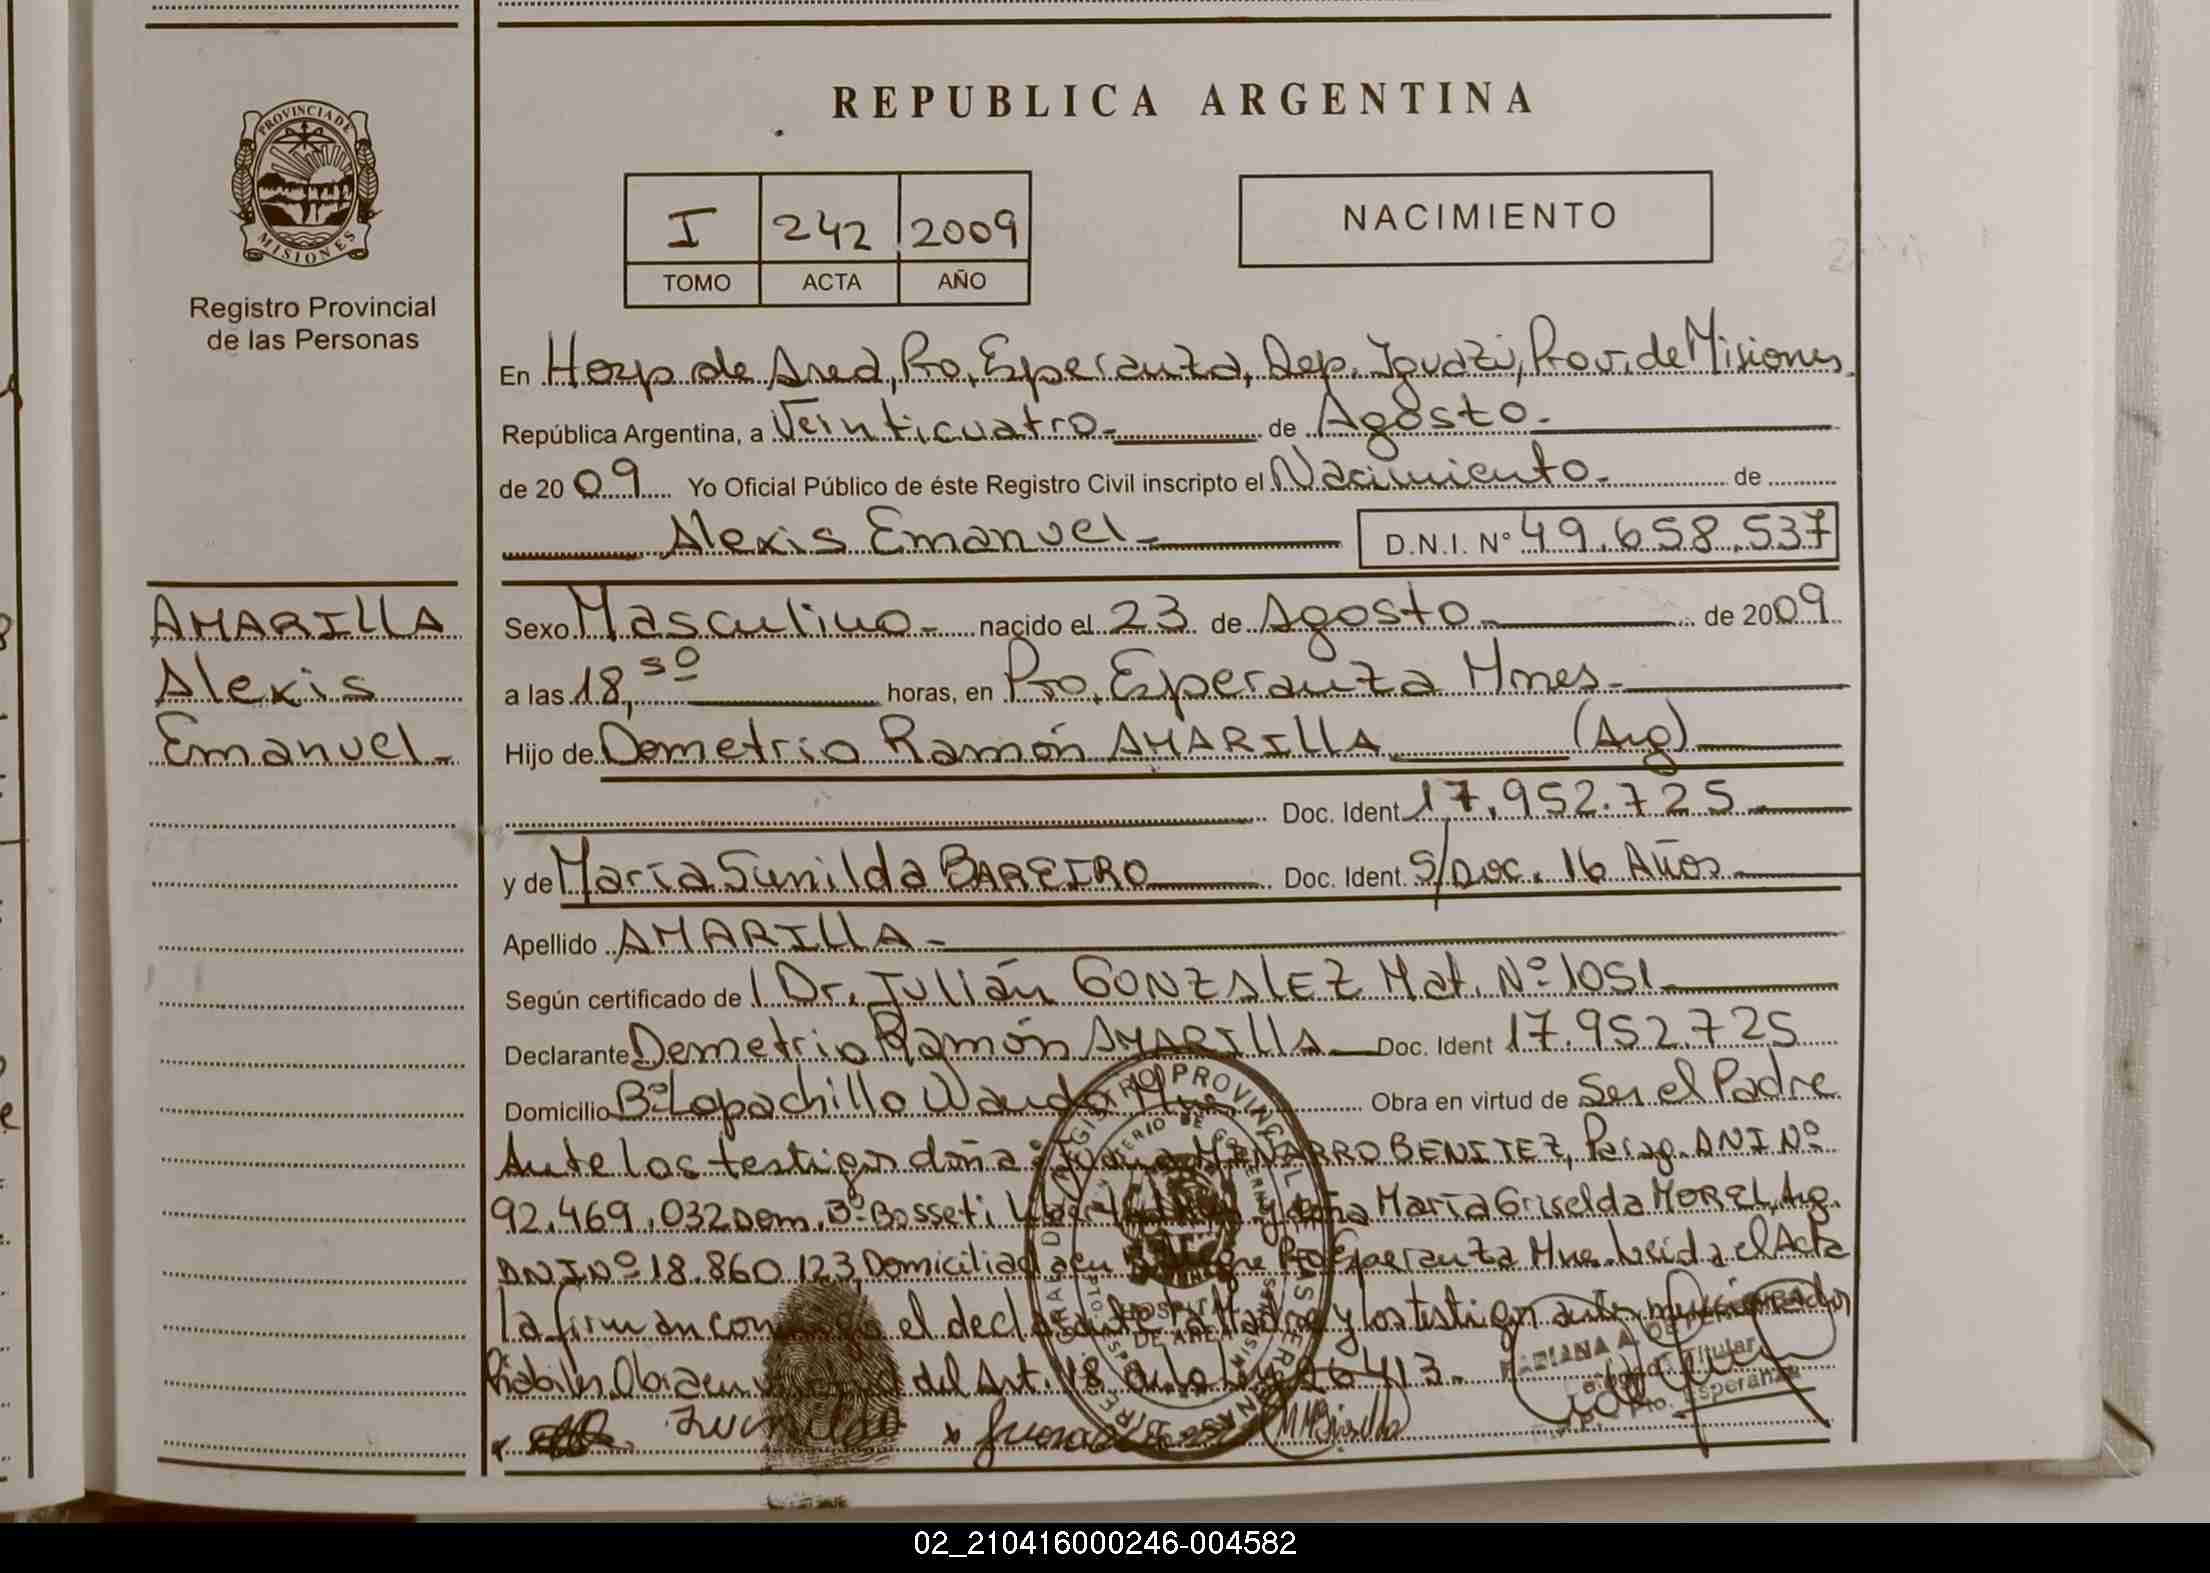 REPUBLICA ARGENTINA
PROVINCIA DE
MISIONES
Registro Provincial
de las Personas
I 242 2009
TOMO ACTA AÑO
NACIMIENTO
En Hosp de Area, Pto. Esperanza, Dep. Iguazú, Prov. de Misiones
República Argentina, a Veinticuatro de Agosto
de 2009 Yo Oficial Público de éste Registro Civil inscripto el Nacimiento de
Alexis Emanuel D.N.I. Nº 49.658.537
AMARILLA
Alexis
Emanuel
Sexo Masculino nacido el 23 de Agosto de 2009
a las 18,50 horas, en Pto. Esperanza Mnes
Hijo de Demetrio Ramón AMARILLA (Arg)
Doc. Ident 17.952.725
y de María Sunilda BAREIRO Doc. Ident. S/Doc. 16 Años
Apellido AMARILLA
Según certificado de l Dr. Julián GONZALEZ Mat. Nº 1051
Declarante Demetrio Ramón AMARILLA Doc. Ident 17.952.725
Domicilio Bº Lapachillo Wanda Obra en virtud de Ser el Padre
Ante los testigos doña BENITEZ, Parag. DNI Nº
92.469.032 Dom. Bº Bosseti y doña María Griselda MOREL, Arg.
DNI Nº 18.860.123, Domiciliada en Pto Esperanza Mnes. Leida el Acta
La firman conmigo el declarante la Madre y los testigos antes mencionados
del Art. 18 de la Ley 26413.
Titular
Pto. Esperanza
02_210416000246-004582